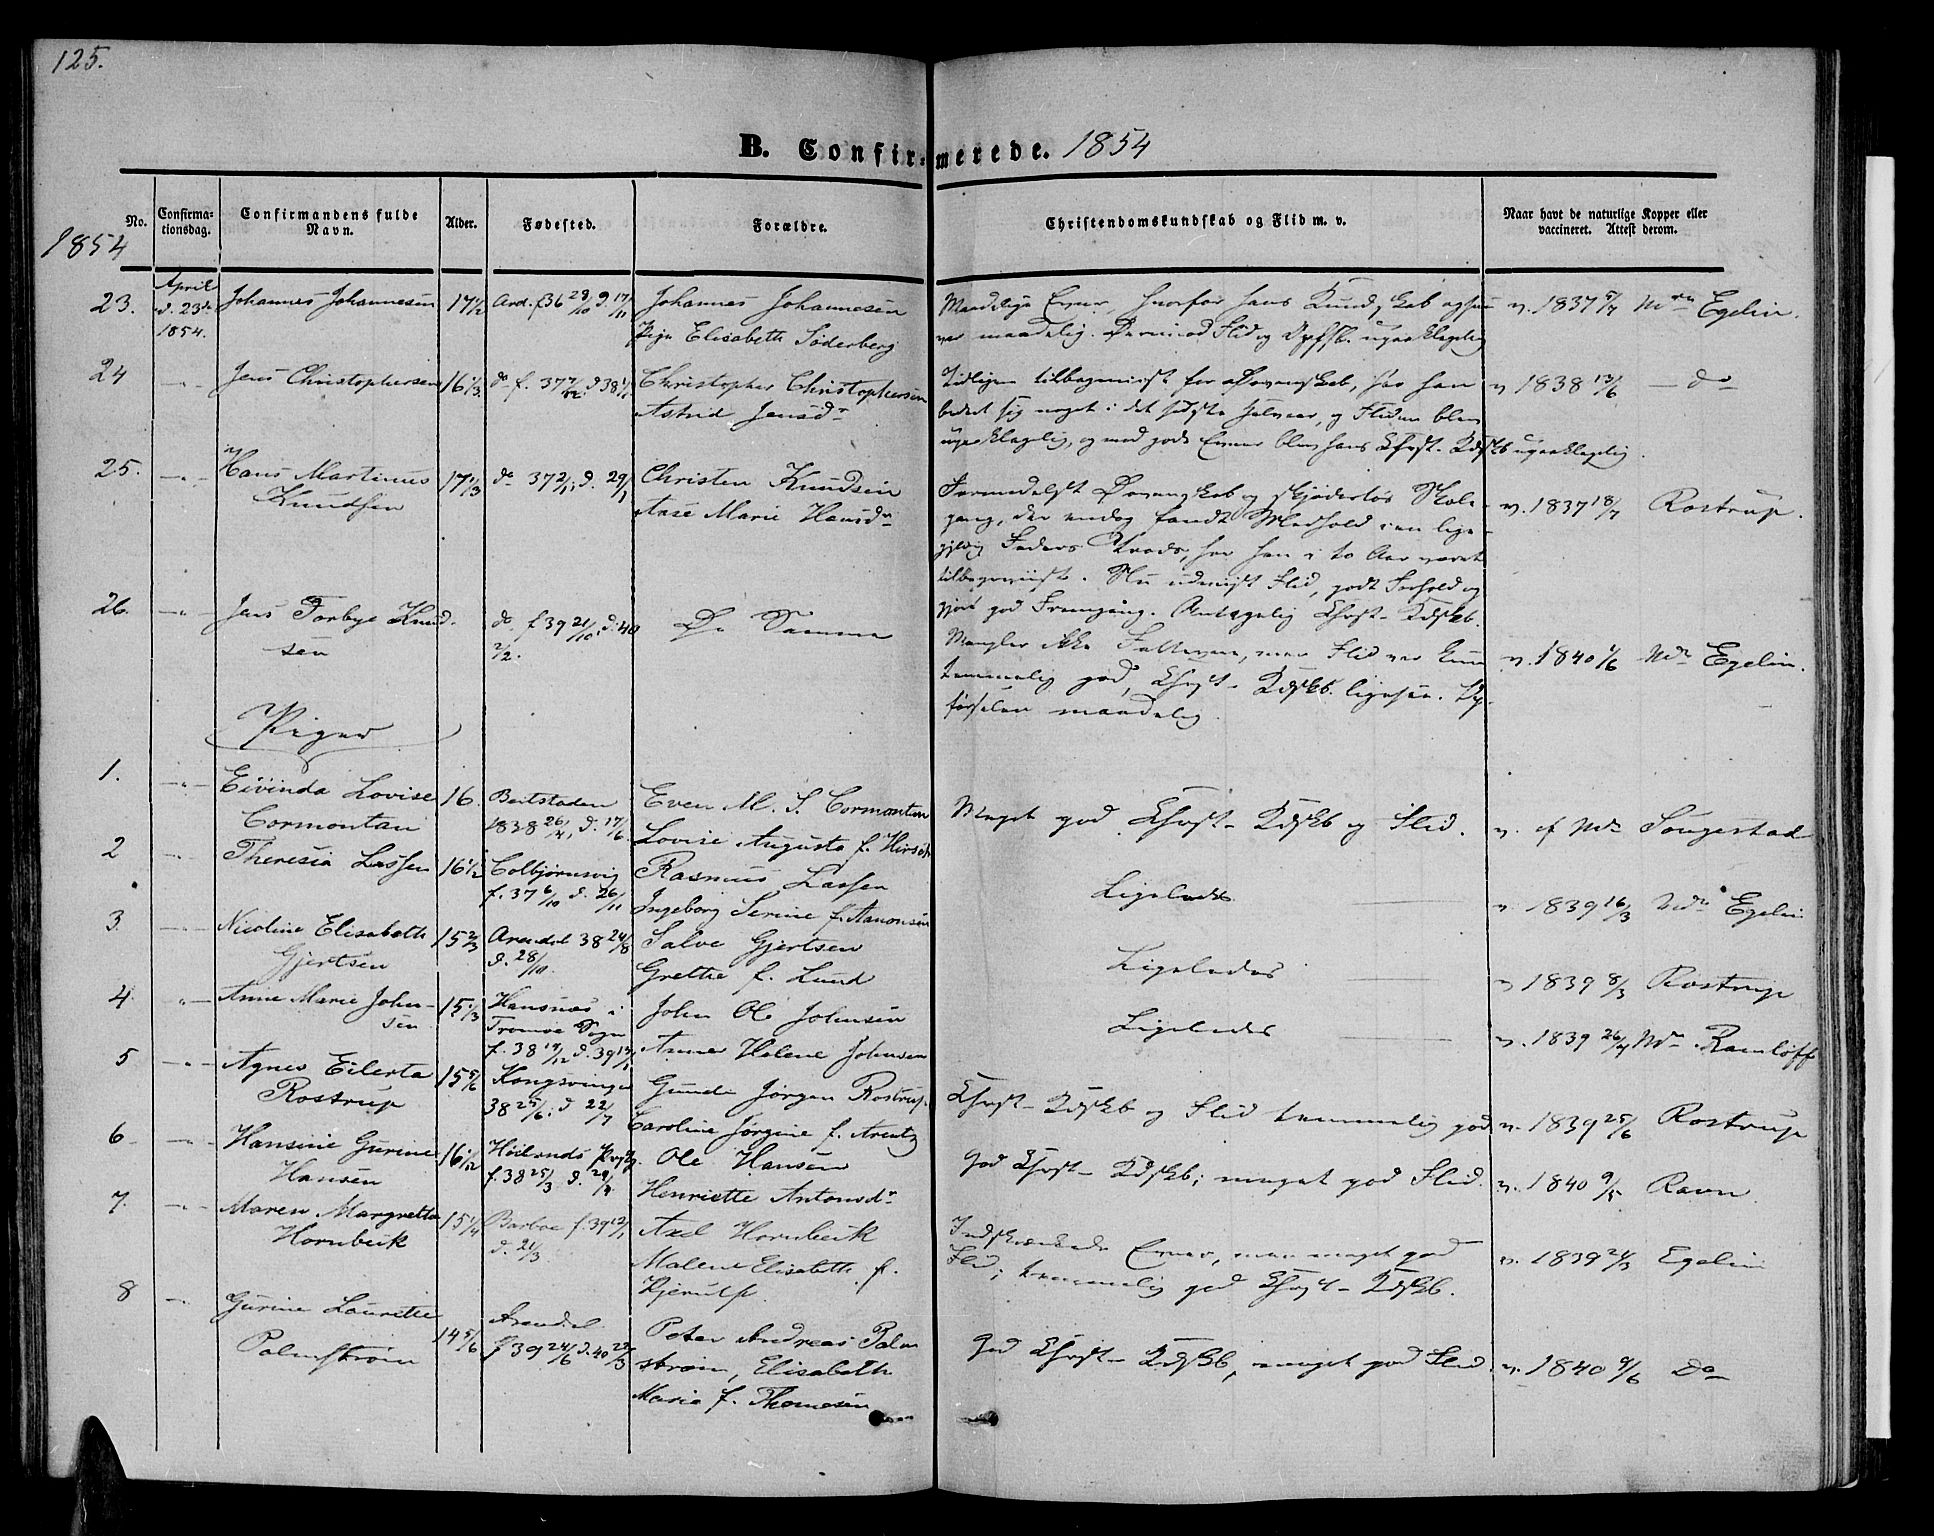 125.
B. Confirmerede. 1854
1854
No.
Confirmationsdag.
Confirmandens fulde Navn.
Alder.
Fødested.
Forældre.
Christendomskundskab og Flid m. v.
Naar havt de naturlige Kopper eller vaccineret. Attest derom.
23. April d. 23de 1854. Johannes Johannesen 17 1/2 Ard. f 36 28/10 d. 17/11 Johannes Johannesen
Pige Elisabeth Söderberg
Maadelige Evner, hvorfor hans Kundskab ogsaa
var maadelig. Derimod Flid og Opfsl. upaaklagelig
v. 1837 5/7 Mdm Egelin.
24 -"- Jens Christophersen 16 1/3 do f. 37 7/12 d 38 1/1 Christopher Christophersen
Astrid Jensdr
Tidligere tilbageviist for Dovenskab, har han
bedret sig noget i det sidste Halvaar, og Fliden blev
upaaklagelig, og med gode Evner blev hans Chrst- Kdskb upaaklagelig.
v 1838 13/6 - do
25. -"- Hans Martinus
Knudsen
17 1/3 do 37 2/1; d. 29/1 Christen Knudsen
Anse Marie Hansdr
Formedelst Dovenskab og skjødesløs Skole-
gang, der endog fandt Medhold i en lige-
gyldig Faders Trods, har han i to Aar været
tilbageviist. Nu udviist Flid, godt Forhold og
gjort god Fremgang. Antagelig Chrst- Kdskb.
v. 1837 18/7 Rostrup.
26. -"- Jens Torbye Knud-
sen
do f 39 21/10; d. 40
2/2.
De Samme
Mangler ikke Fatteevne, men Flid var kun
temmelig god, Chrst- Kdskb. ligesaa. Op-
førselen maadelig.
v. 1840 1/6 Mdm Egelin.
Piger
1. -"- Eivinda Lovise
Cormontan
16. Beitstaden
1838 26/4, d. 17/6.
Even M. S. Cormontan
Lovise Augusta f. Hirsch
Meget god Chrst- Kdskb og Flid.
v. af Mdm Songestad
2 -"- Theresia Lassen 16 1/2 Colbjørnsvig
f. 37 6/10 d. 26/11
Rasmus Lassen
Ingeborg Serine f. Aanonsen
Ligeledes
v. 1839 16/3 Mdm Egelin
3 -"- Nicoline Elisabeth
Gjertsen
15 2/3 Arendal 38 24/8
d. 28/10.
Salve Gjertsen
Grethe f. Lund
Ligeledes
v 1839 8/3 Rostrup
4. -"- Anne Marie John-
sen
15 1/3 Hansnæs i
Tromøe Sogn
f. 38 19/12 d. 39 14/1
John Ole Johnsen
Anne Helene Johnsen
Ligeledes
v. 1839 26/4 Mdm Ramløff
5 -"- Agnes Eilerta
Rostrup
15 5/6 Kongsvinger
38 25/6; d 22/7
Gunde Jørgen Rostrup.
Caroline Jørgine f. Arentz
Chrst- Kdskb og Flid temmelig god
v. 1839 25/6 Rostrup
6. -"- Hansine Gurine
Hansen
16 1/12 Høilands Prgj.
f. 38 25/3 d. 29/4
Ole Hansen
Henriette Antonsdr
God Chrst- Kdskb; meget god Flid.
v. 1840 9/5 Ravn.
7. -"- Maren Margretha
Hornbeik
15 1/4 Barboe f. 39 12/1
d. 21/3
Axel Hornbeik
Malene Elisabeth f.
Kjerulf.
Indskrænkede Evner, men meget god
Flid; temmelig god Chrst- Kdskb.
v. 1839 24/3 Egelin
8 -"- Gurine Laurette
Palmstrøm
14 5/6 Arendal
f 39 24/6 d. 40 22/3
Peter Andreas Palm
strøm, Elisabeth
Maria f. Thomesen
God Chrst- Kdskb, meget god Flid.
v. 1840 9/6 Do